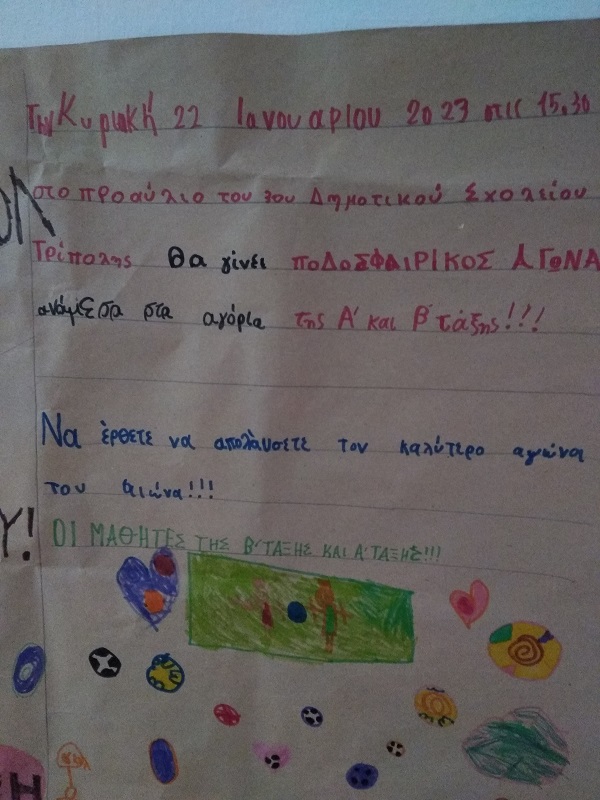 Την Κυριακή 22 Ιανουαριου 2023 στις 15.30
στο προαύλιο του 3ου Δημοτικού Σχολείου
Τρίπολης Θα γίνει ποΔοΣΦΑΙΡΙΚΟΣ ΑΓΩΝΑ
ανάμεσα στα αγόρια της Α' και Β' τάξης!!!
Να έρθετε να απολάυσετε τον καλύτερο αγώνα
του αιώνα!!!
Υ!
ΟΙ ΜΑΘΗΤΕΣ ΤΗΣ Β'ΤΑΞΗΣ ΚΑΙ Α'ΤΑΞΗΣ!!!